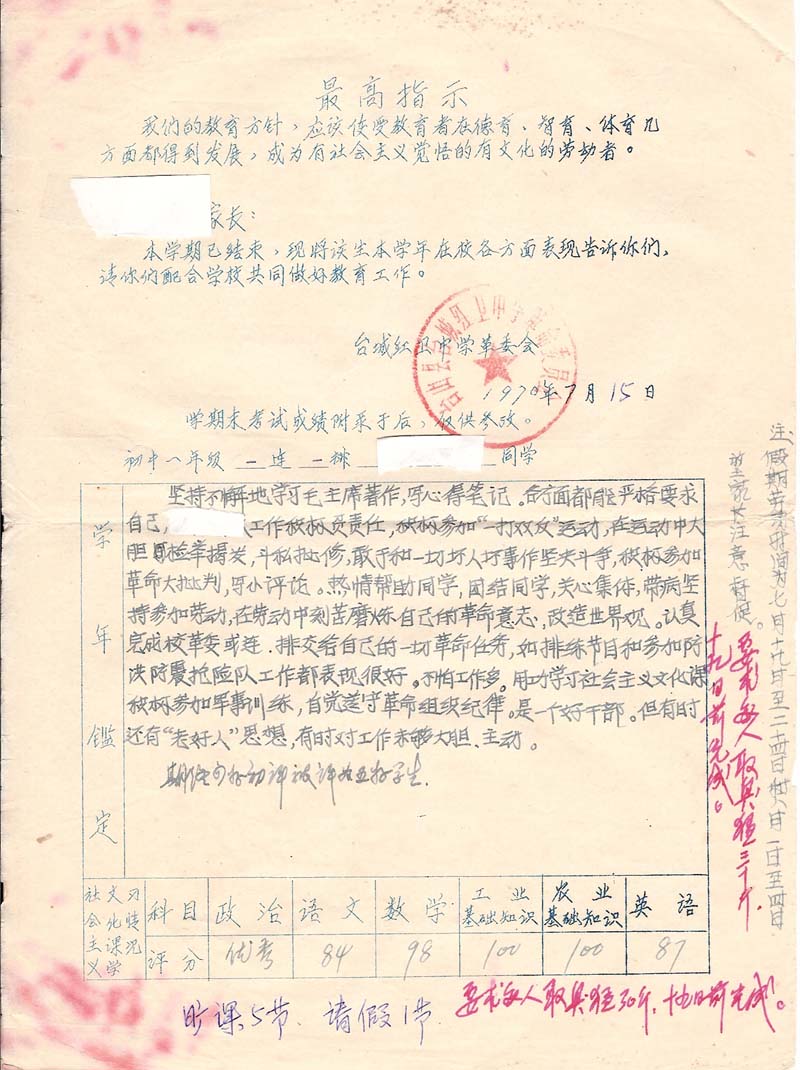 最高指示
我们的教育方针，应该使受教育者在德育、智育、体育几
方面都得到发展，成为有社会主义觉悟的有文化的劳动者。
家长：
本学期已结束，现将该生本学年在校各方面表现告诉你们，
请你们配合学校共同做好教育工作。
台城红卫中学革委会
1970年7月15日
学期末考试成绩附录于后，仅供参改。
初中一年级 一连 一排 同学
学年鉴定
坚持不懈地学习毛主席著作，写心得笔记。各方面都能严格要求
自己，工作积极负责任，积极参加“一打双反”运动，在运动中大
胆检举揭发，斗私批修，敢于和一切坏人坏事作坚决斗争，积极参加
革命大批判，写小评论。热情帮助同学，团结同学，关心集体，带病坚
持参加劳动，在劳动中刻苦磨炼自己的革命意志，改造世界观。认真
完成校革委或连．排交给自己的一切革命任务，如排练节目和参加防
洪防震抢险队工作都表现很好。不怕工作多。用功学习社会主义文化课
积极参加军事训练，自觉遵守革命组织纪律。是一个好干部。但有时
还有“老好人”思想，有时对工作未够大胆、主动。
初评被评为五好学生．
社会主义文化课学习情况
科目 政治 语文 数学 工业基础知识 农业基础知识 英语
评分 优秀 84 98 100 100 87
旷课5节、请假1节
要求每人取具 30斤，十九日前完成。
注：假期劳动时间为七月十九日至二十四日和八月一日至四日
望家长注意督促。
要求每人取具 三十斤，
十九日前完成。
台山县台城红卫中学革命委员会